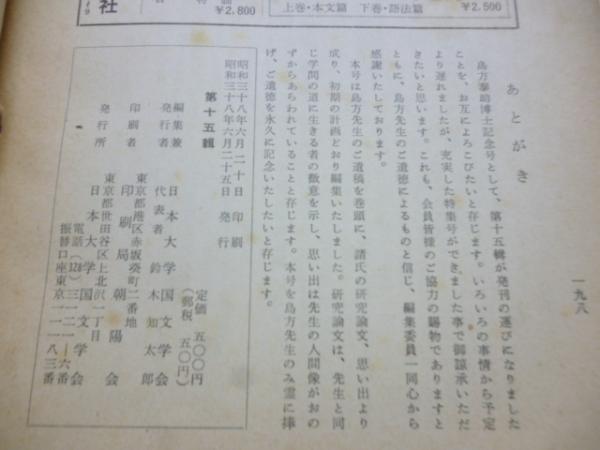 社
￥2.800
上巻・本文篇 下巻・語法篇
￥2.500
一九八
あとがき
島方泰助博士記念号として、第十五輯が発刊の運びになりました
ことを、お互によろこびたいと存じます。いろいろの事情から予定
より遅れましたが、充実した特集号ができました事で御諒承いただ
きたいと思います。これも、会員皆様のご協力の賜物でありますと
ともに、島方先生のご遺徳によるものと信じ、編集委員一同心から
感謝いたしております。
本号は島方先生のご遺稿を巻頭に、諸氏の研究論文、思い出より
成り、初期の計画どおり編集いたしました。研究論文は、先生と同
じ学問の道に生きる者の敬意を示し、思い出は先生の人間像がおの
ずからあらわれていることと存じます。本号を島方先生のみ霊に捧
げ、ご遺徳を永久に記念いたしたいと存じます。
昭和三十八年六月二十日 印刷
昭和三十八年六月二十五日 発行
第十五輯
定価 五〇〇円
(郵税 五〇円)
編集兼発行者 日本大学国文学会
代表者 鈴木知太郎
東京都港区赤坂葵町二番地
印刷者 印刷局朝陽会
東京都世田谷区上北沢一丁目
発行所 日本大学国文学会
電話(328)三一二一―六番